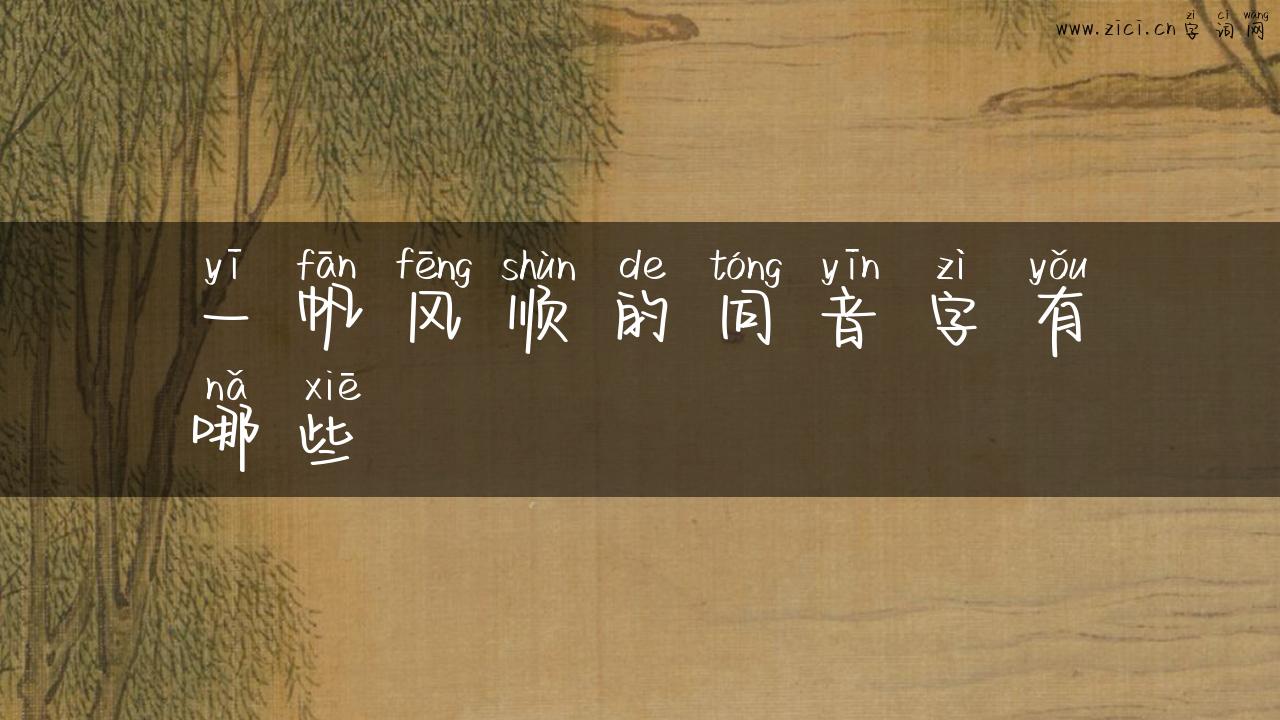 zì cí wǎng
www.zici.cn字词网
yī fān fēng shùn de tóng yīn zì yǒu
一帆风顺的同音字有
nǎ xiē
哪些